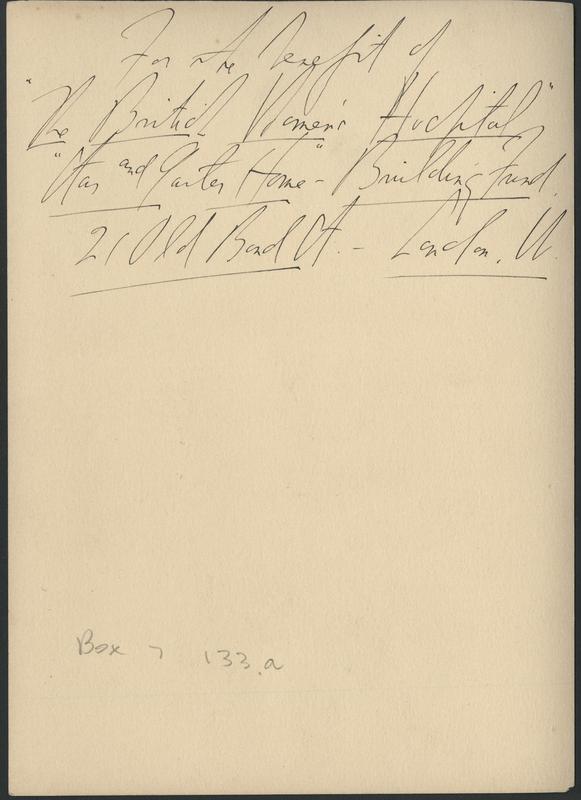 For the benefit of
"The British Women's Hospital"
"Star and Garter Home" - Building Fund.
21 Old Bond St. - London. W.
Box 7 133.a